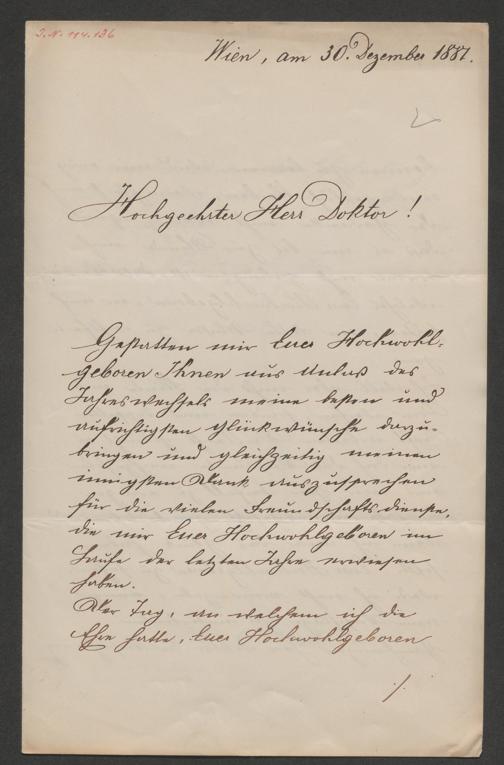 J.N. 114.136
Wien, am 30. Dezember 1887.
Hochgeehrter Herr Doktor!
Gestatten mir Euer Hochwohl-
geboren Ihnen aus Anlaß des
Jahreswechsels meine besten und
aufrichtigsten Glückwünsche darzu-
bringen und gleichzeitig meinen
innigsten Dank auszusprechen
für die vielen Freundschaftsdienste,
die mir Euer Hochwohlgeboren im
Laufe der letzten Jahre erwiesen
haben.
Der Tag, an welchem ich die
Ehre hatte, Euer Hochwohlgeboren
./.